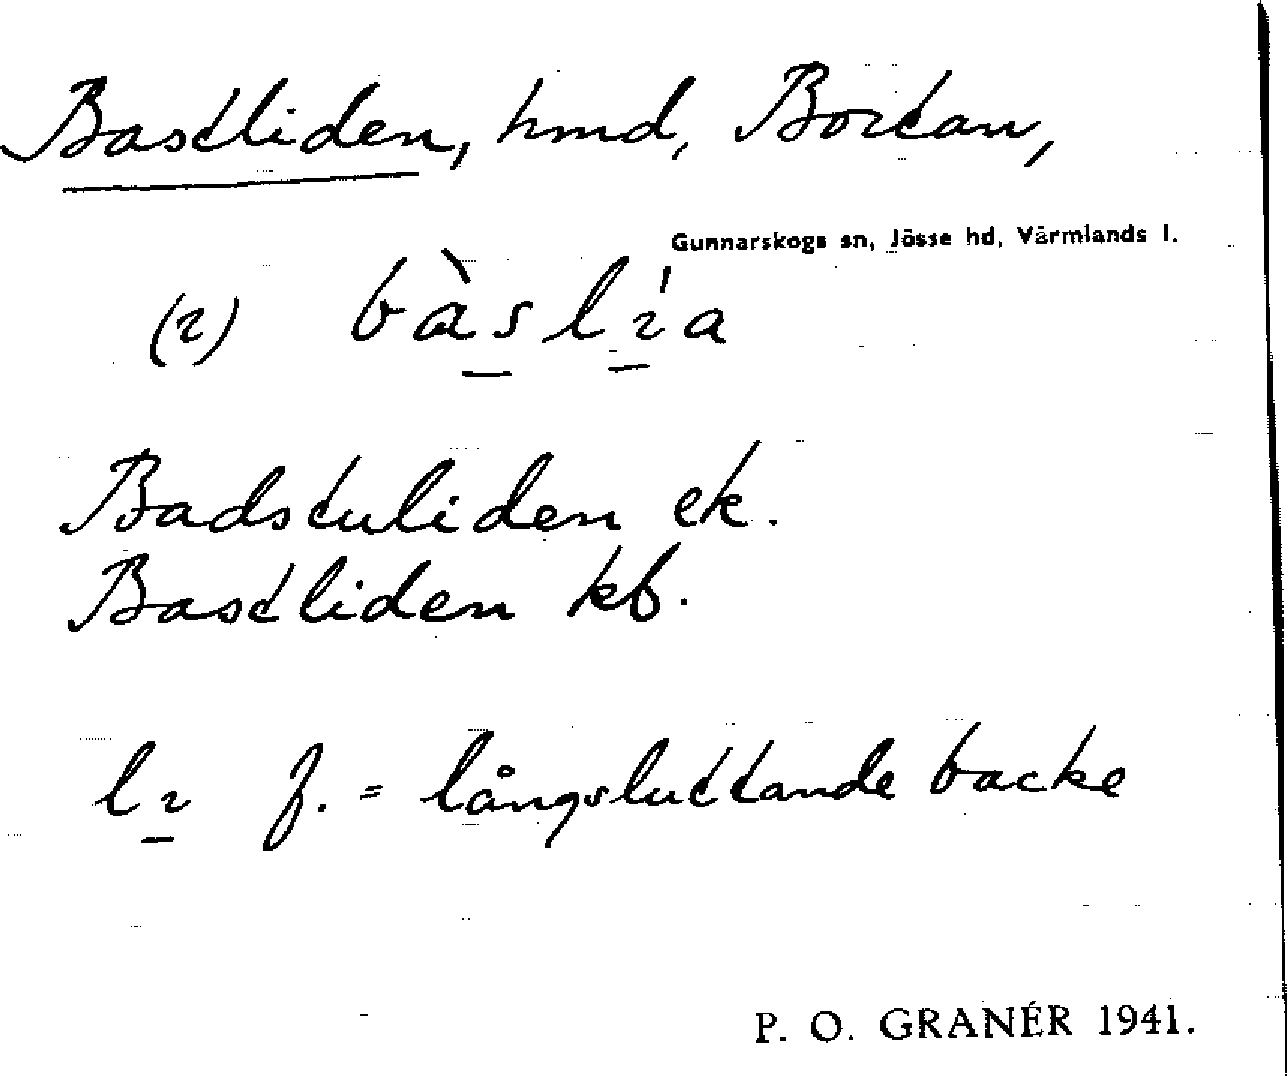 Bastliden, hmd, Bortan,
Gunnarskogs sn, Jösse hd, Värmlands l.
(ɩ) bàslɩ́a
Badstuliden ek.
Bastliden kb.
lɩ f. = långsluttande backe
P. O. GRANÉR 1941.